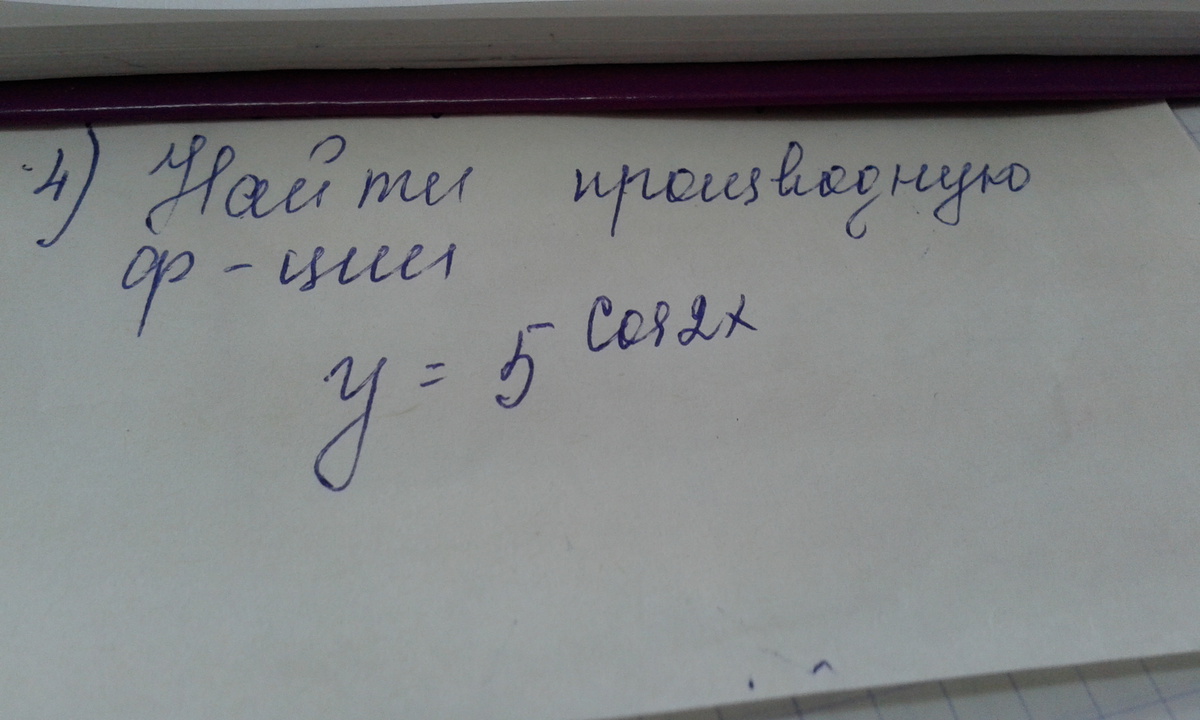 4) Найти производную
ф-ции
y = 5^cos2x